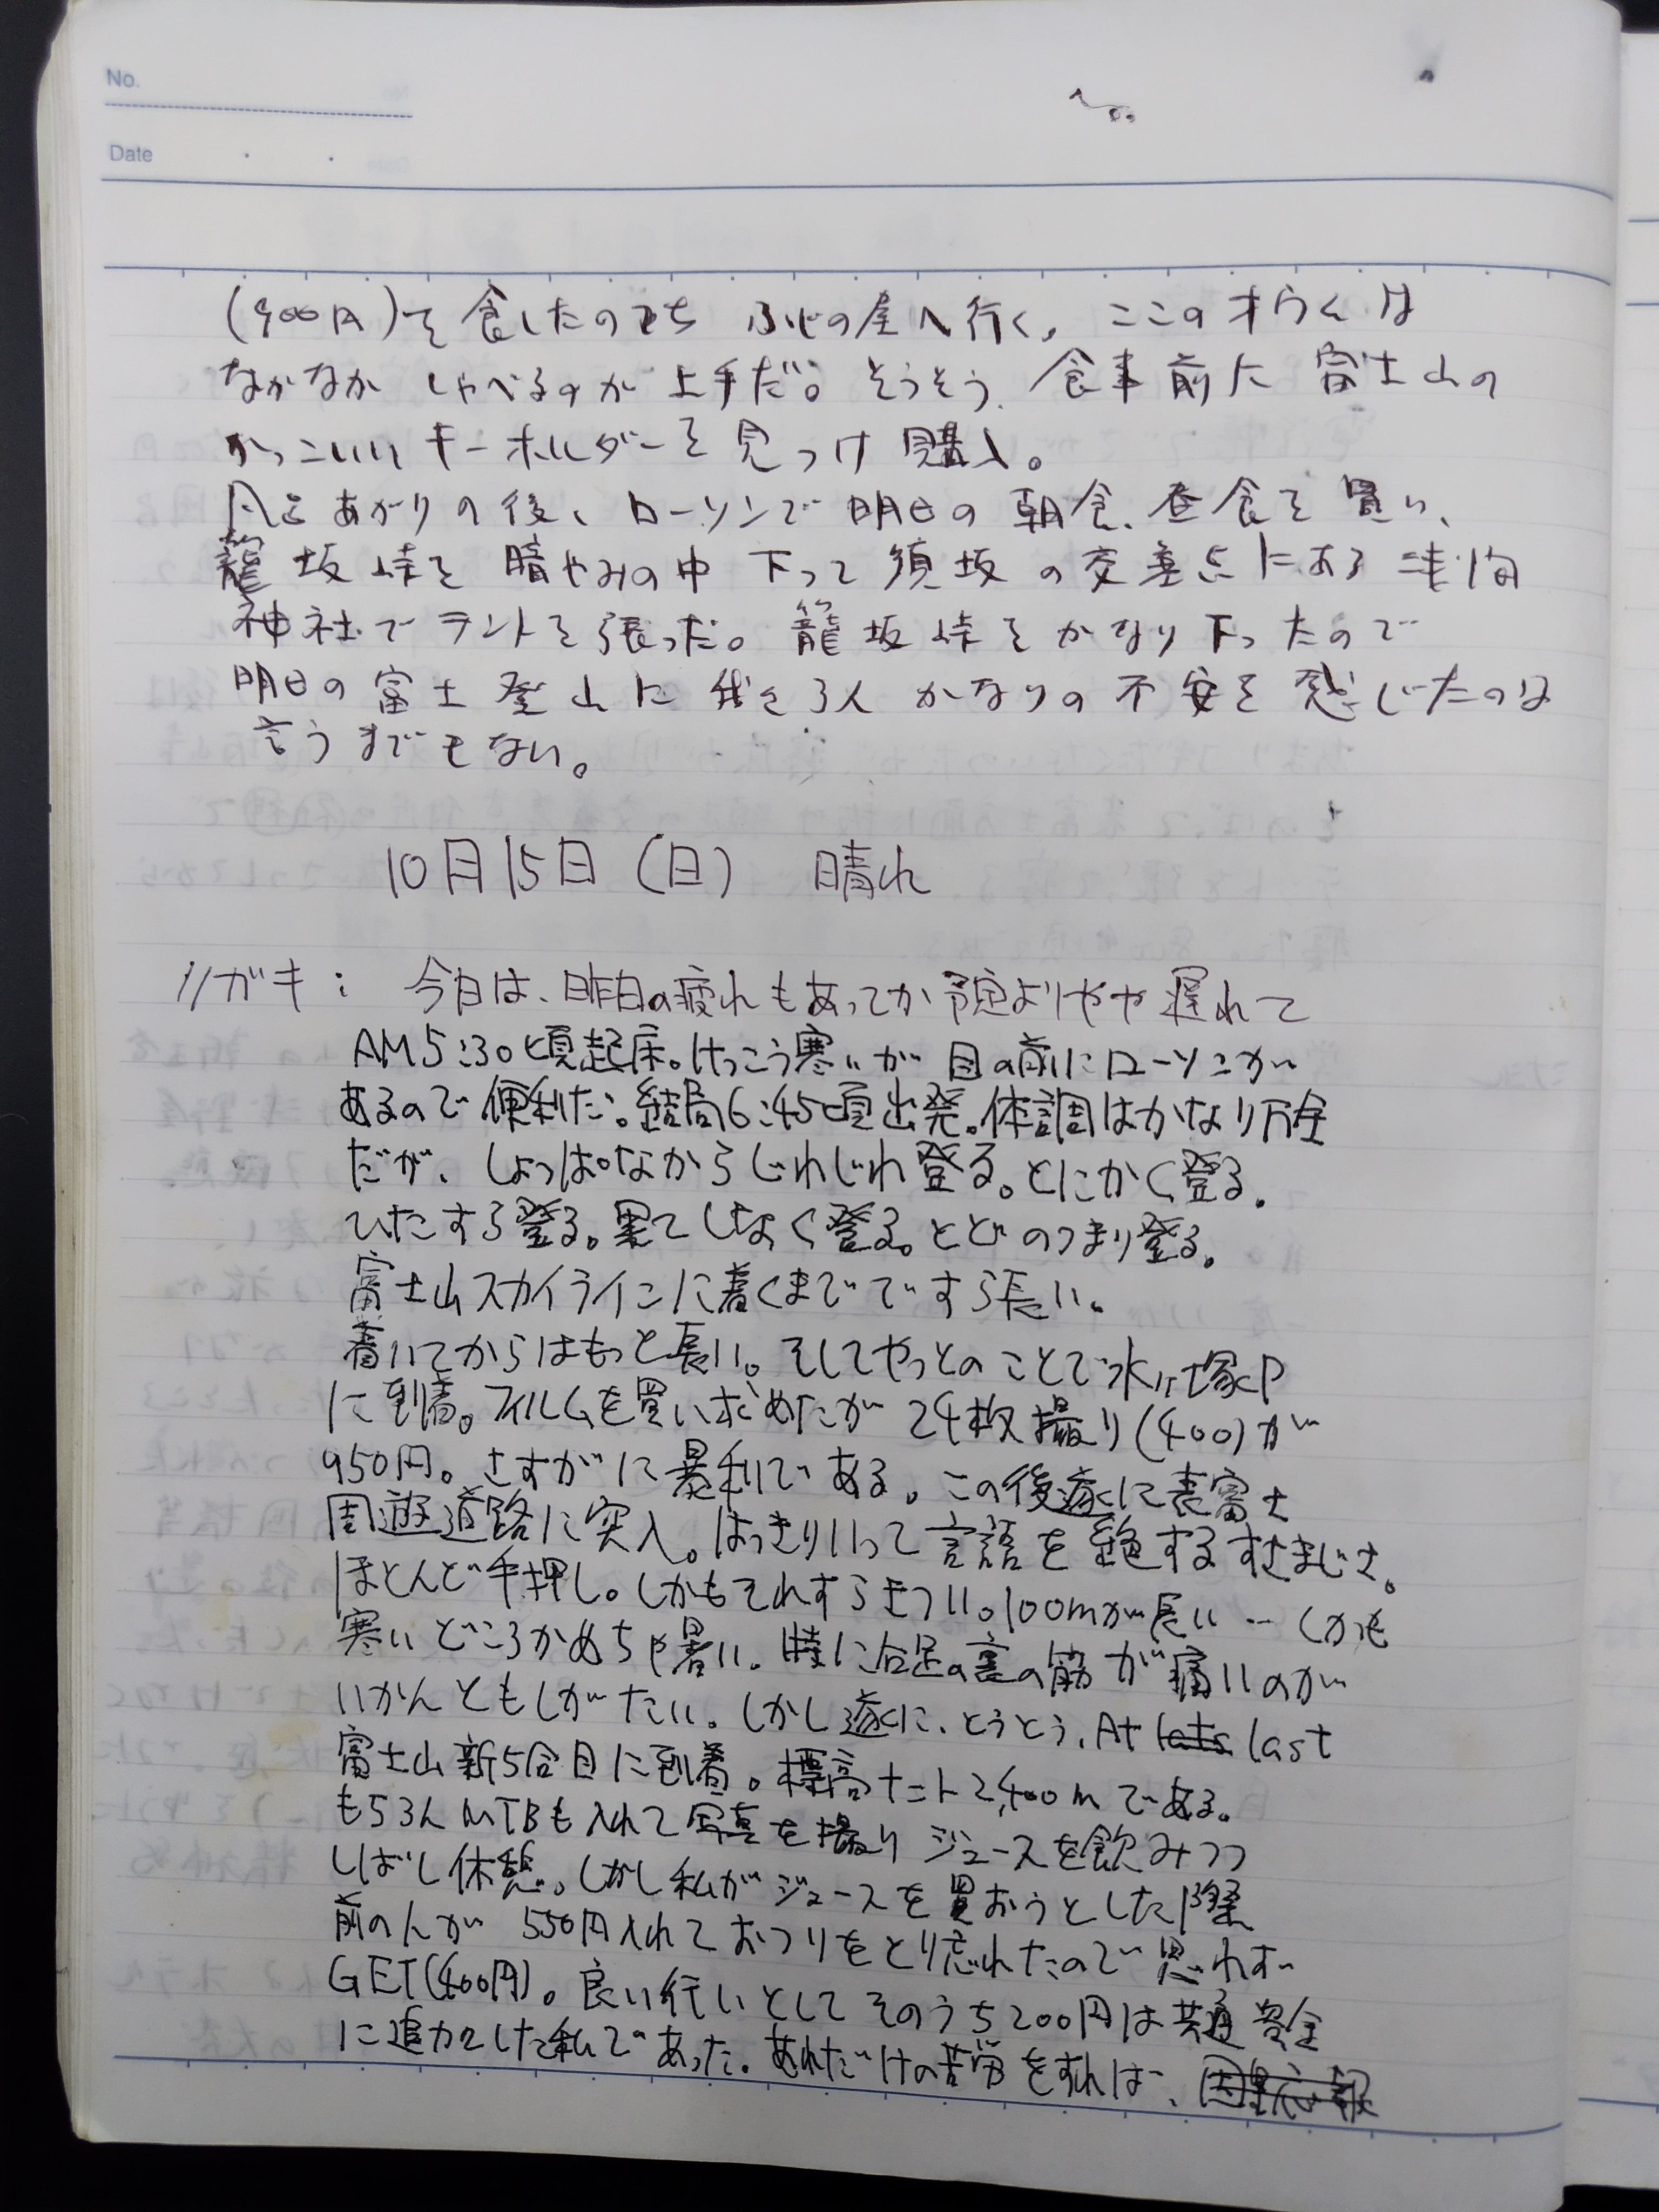 No.
Date
(900円)を食したのち ふじの屋へ行く。ここのオウムは
なかなか しゃべるのが 上手だ。そうそう、食事前に 富士山の
かっこいい キーホルダーを 見つけ 購入。
風呂あがりの後、ローソンで 明日の 朝食、昼食を 買い、
籠坂峠を 暗やみの中 下って 須坂の交差点にある 浅間
神社で テントを張った。籠坂峠を かなり下ったので
明日の富士登山に 我々3人 かなりの不安を 感じたのは
言うまでもない。
10月15日(日) 晴れ
リガキ: 今日は、昨日の疲れもあってか 予定よりやや遅れて
AM5:30頃起床。けっこう寒いが 目の前にローソンが
あるので便利だ。結局6:45頃出発。体調はかなり万全
だが、しょっぱなからじわじわ登る。とにかく登る。
ひたすら登る。果てしなく登る。とどのつまり登る。
富士山スカイラインに着くまでですら長い。
着いてからはもっと長い。そしてやっとのことで水ヶ塚P
に到着。フィルムを買い求めたが 24枚撮り(400)が
950円。さすがに暴利である。この後遂に表富士
周遊道路に突入。はっきりいって言語を絶するすさまじさ。
ほとんど手押し。しかもそれすらきつい。100mが長い… しかも
寒いどころかめちゃ暑い。特に右足の裏の筋が痛いのが
いかんともしがたい。しかし遂に、とうとう、At last
富士山新5合目に到着。標高ナント2,400mである。
もち3人MTBも入れて写真を撮り ジュースを飲みつつ
しばし休憩。しかし私がジュースを買おうとした際
前の人が 550円入れておつりをとり忘れたので思わず
GET(400円)。良い行いとしてそのうち200円は共通資金
に追加した私であった。あれだけの苦労をすれば、因果応報